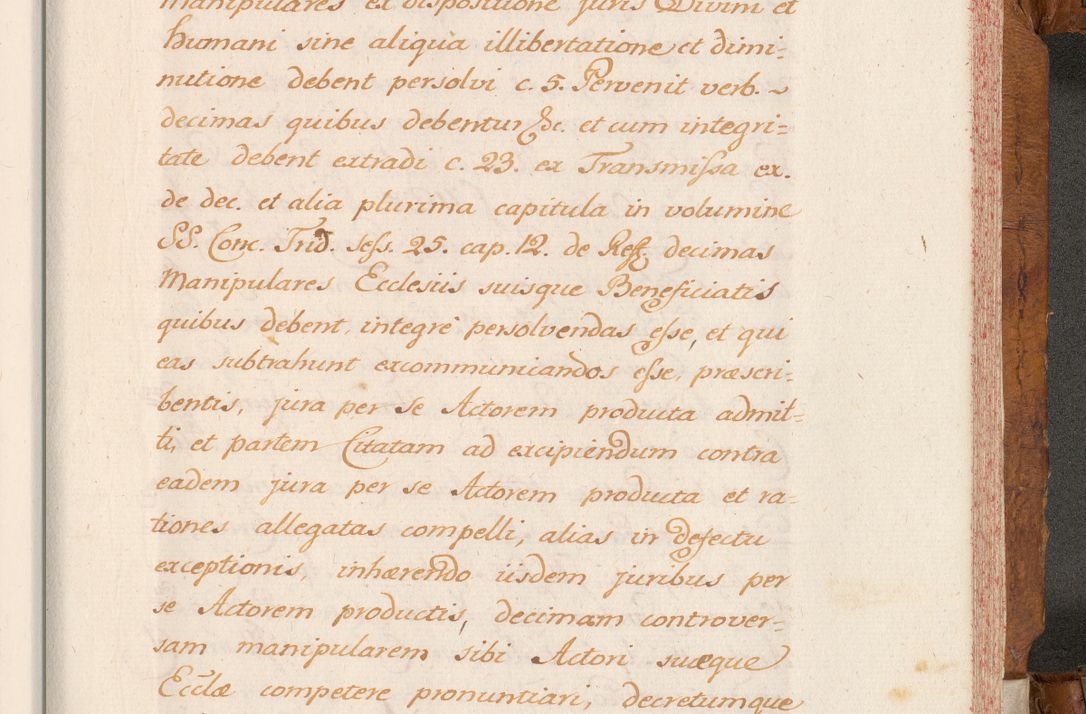 manipulares ex dispositione juris Divini et
humani sine aliqua illibertatione et dimi=
nutione debent persolvi c. 5. Pervenit verb. ~
decimas quibus debentur &c. et cum integri=
tate debent extradi c. 23. ex Transmissa ex.
de dec. et alia plurima capitula in volumine
SS. Conc. Trid. sess. 25. cap. 12. de Reff. decimas
Manipulares Ecclesiis suisque Beneficiatis
quibus debent, integre persolvendas esse, et qui
eas subtrahunt excommunicandos esse, præscri=
bentis, jura per se Actorem producta admit=
ti, et partem Citatam ad excipiendum contra
eadem jura per se Actorem producta et ra=
tiones allegatas compelli, alias in defectu
exceptionis, inhærendo iisdem juribus per
se Actorem productis, decimam controver=
sam manipularem sibi Actori suæque
Ecclæ competere pronuntiari, decretumque